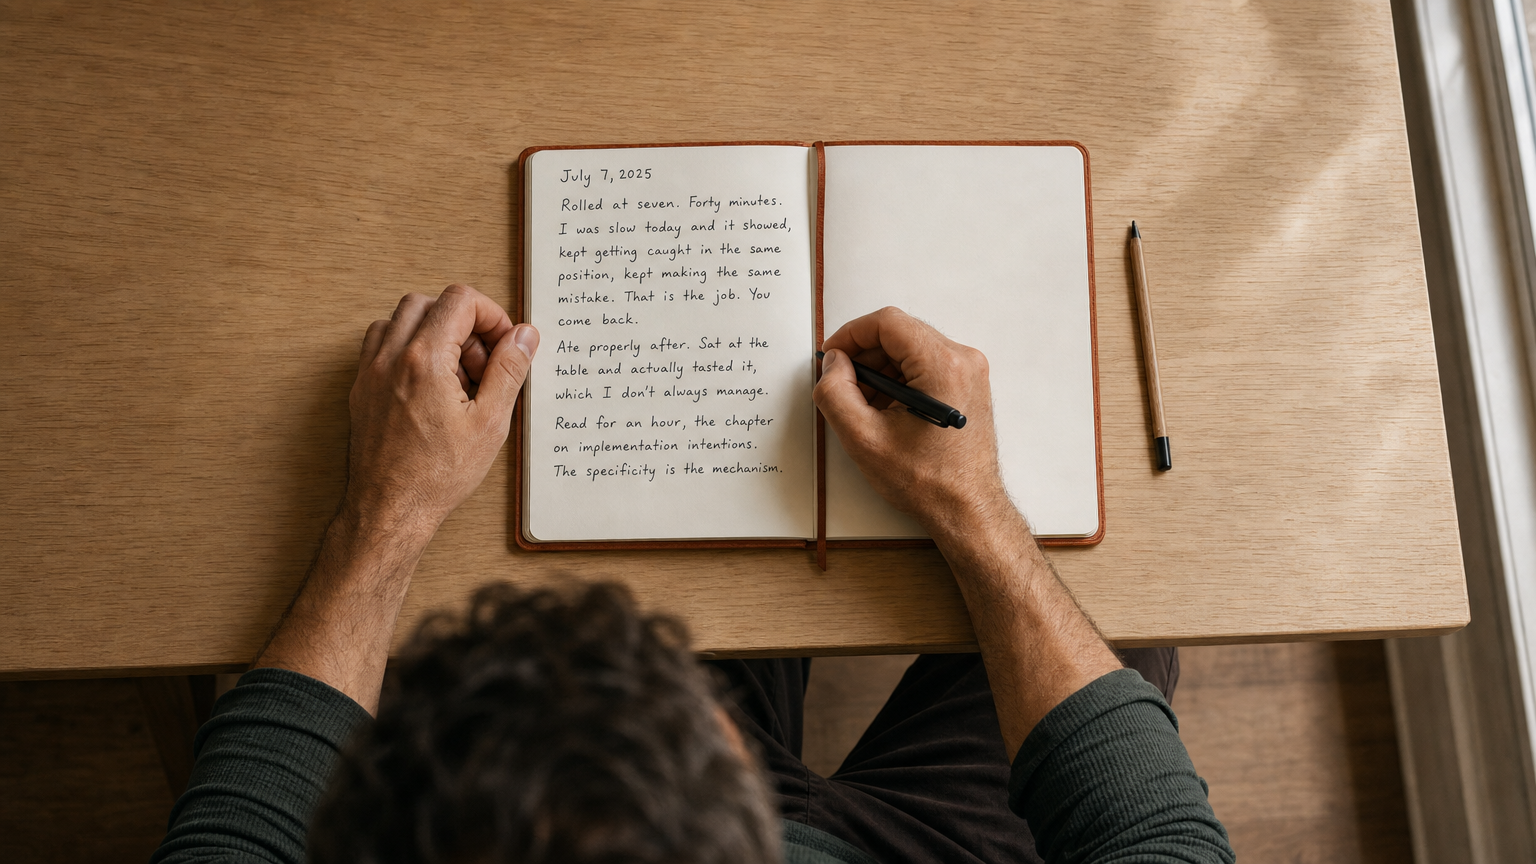 July 7, 2025
Rolled at seven. Forty minutes.
I was slow today and it showed,
kept getting caught in the same
position, kept making the same
mistake. That is the job. You
come back.
Ate properly after. Sat at the
table and actually tasted it,
which I don't always manage.
Read for an hour, the chapter
on implementation intentions.
The specificity is the mechanism.